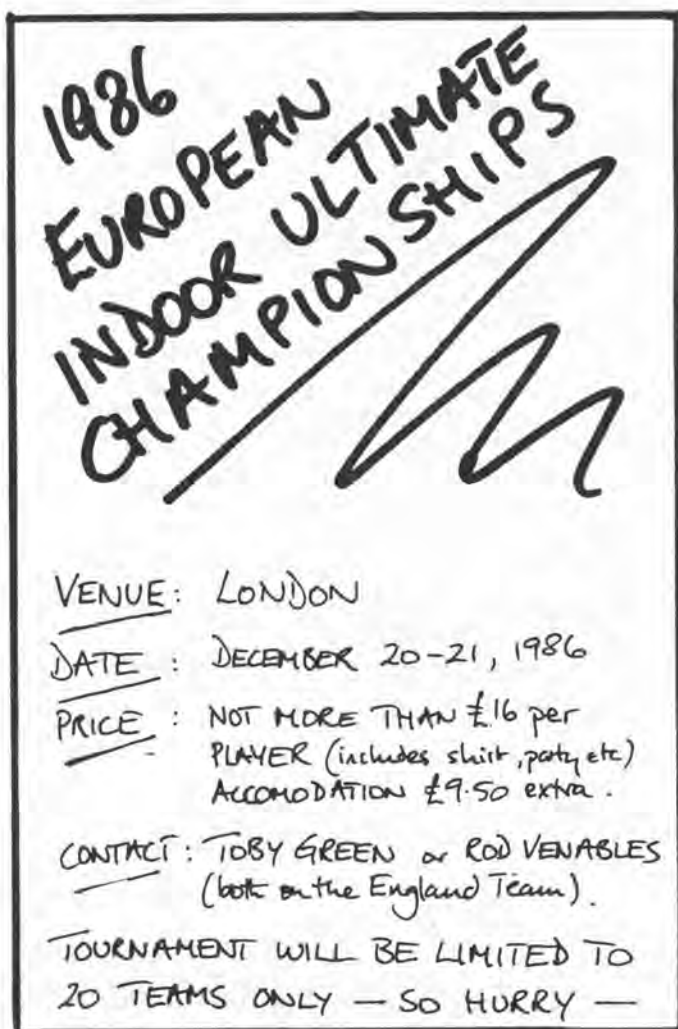 1986
EUROPEAN
INDOOR ULTIMATE
CHAMPIONSHIPS
VENUE: LONDON
DATE: DECEMBER 20-21, 1986
PRICE: NOT MORE THAN £16 per
PLAYER (includes shirt, party etc)
ACCOMODATION £9.50 extra.
CONTACT: TOBY GREEN or ROD VENABLES
(both on the England Team).
TOURNAMENT WILL BE LIMITED TO
20 TEAMS ONLY — SO HURRY —